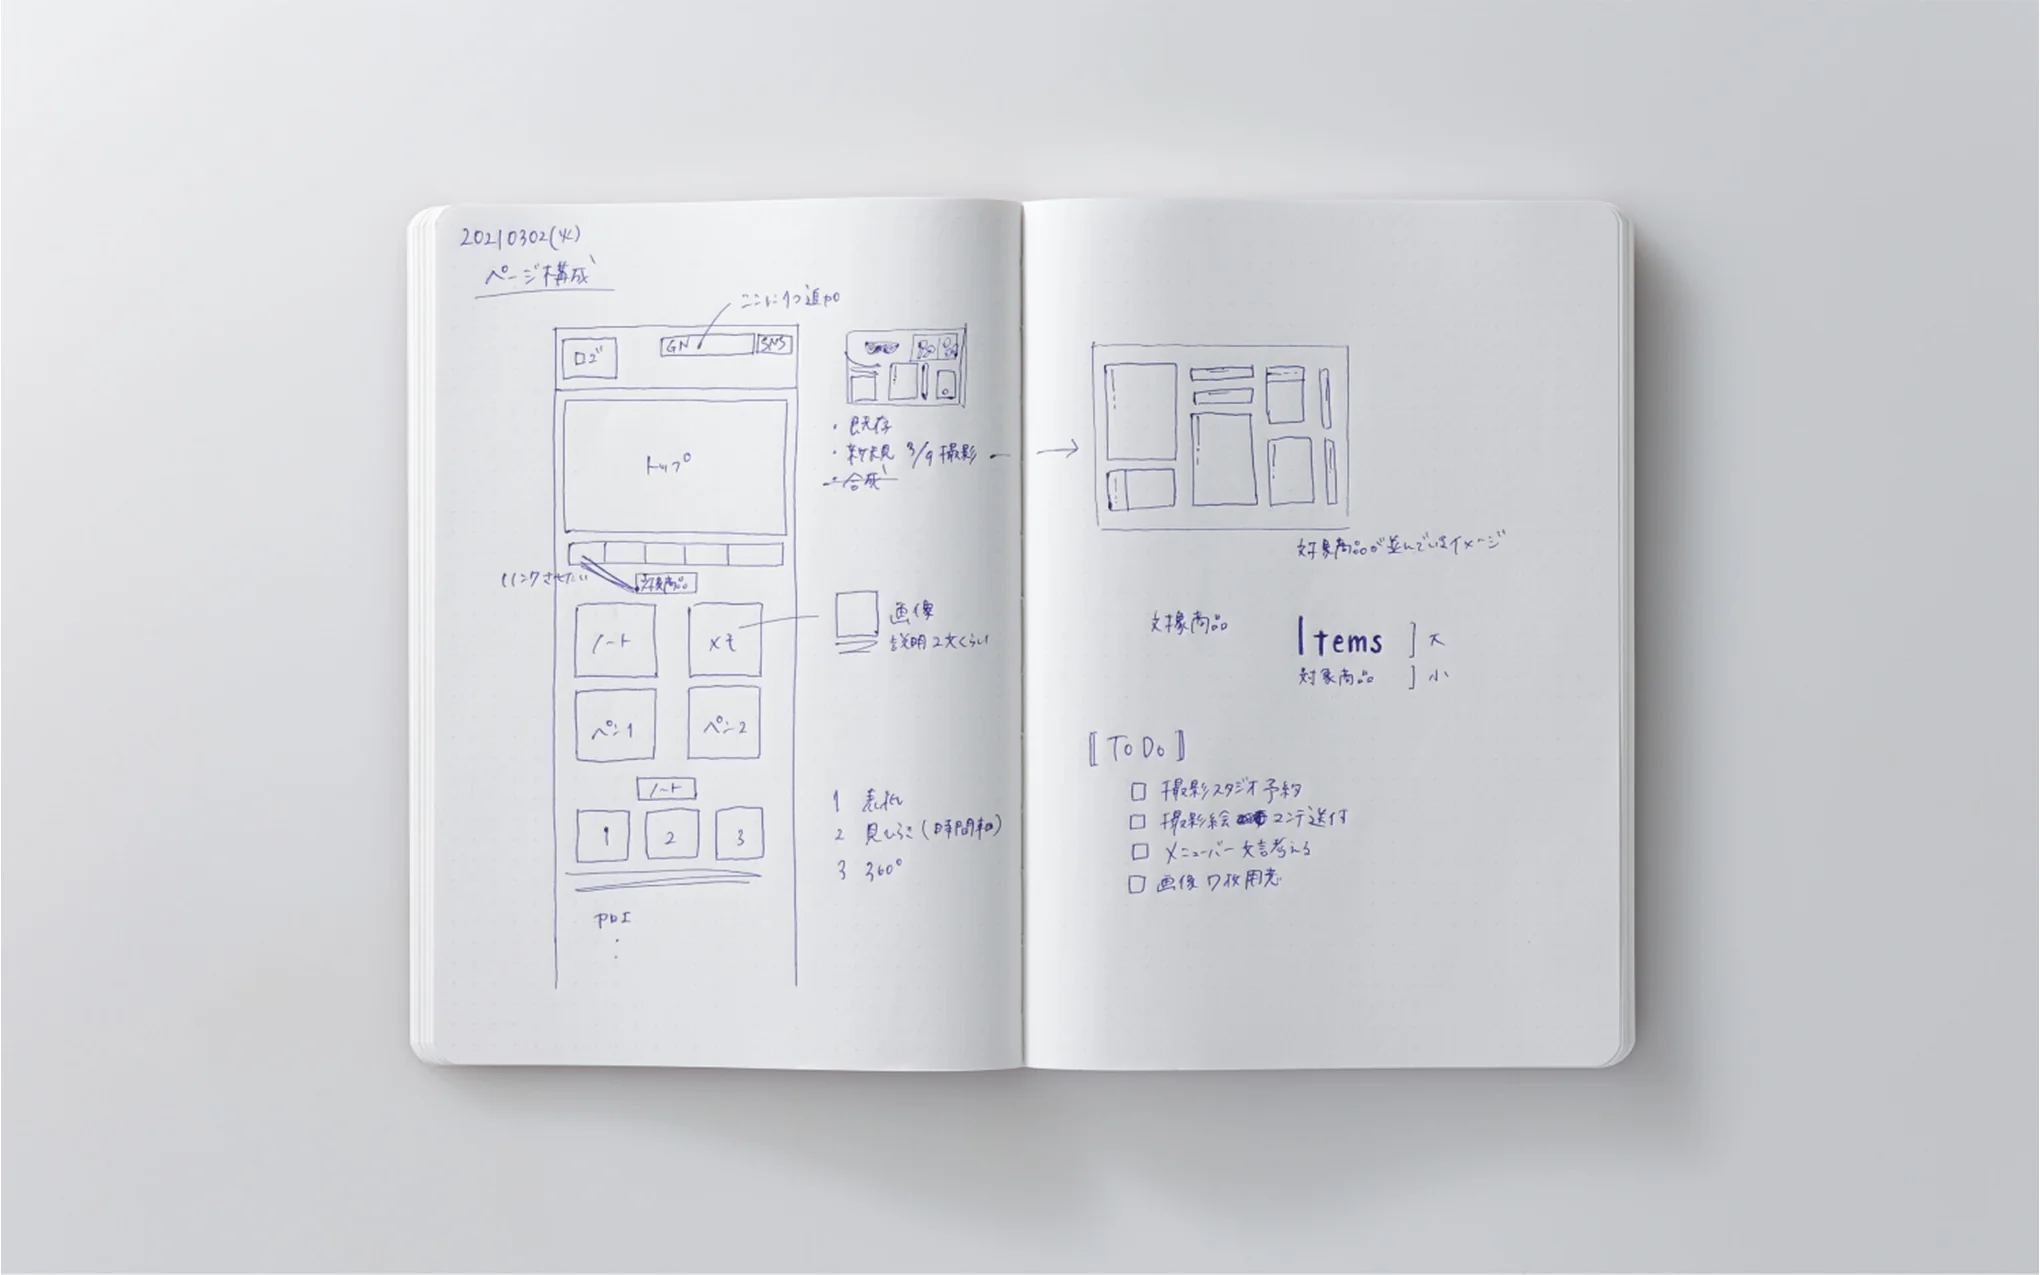 20210302(火)
ページ構成
ここに1つ追加
ロゴ
GN
SNS
トップ
・既存
・新規 3/9 撮影
・合成
リンクさせたい
対象商品
ノート
メモ
画像
説明2文くらい
ペン1
ペン2
ノート
1
2
3
1 表紙
2 見ひらき(時間軸)
3 360°
対象商品が並んでいるイメージ
対象商品
Items ] 大
対象商品 ] 小
[ToDo]
□ 撮影スタジオ予約
□ 撮影絵コンテ送付
□ メニューバー文言考える
□ 画像7枚用意